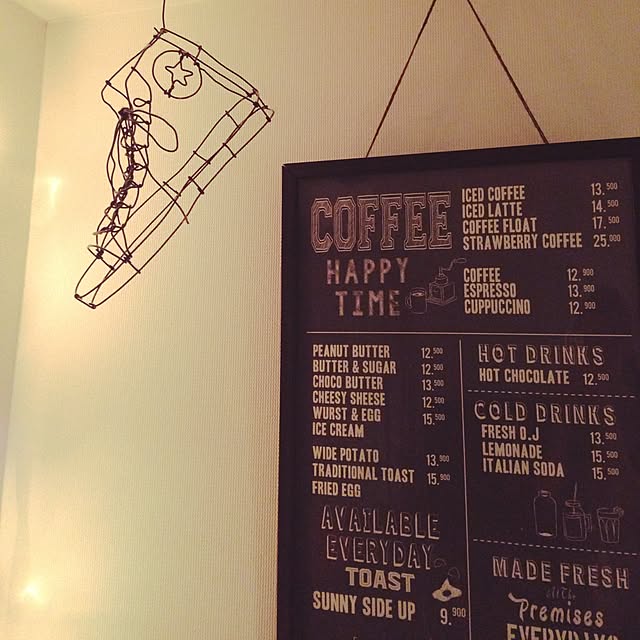 COFFEE
HAPPY
TIME
ICED COFFEE 13.500
ICED LATTE 14.500
COFFEE FLOAT 17.500
STRAWBERRY COFFEE 25.000
COFFEE 12.900
ESPRESSO 13.900
CUPPUCCINO 12.900
PEANUT BUTTER 12.500
BUTTER & SUGAR 12.500
CHOCO BUTTER 13.500
CHEESY SHEESE 12.500
WURST & EGG 15.500
ICE CREAM
WIDE POTATO 13.900
TRADITIONAL TOAST 15.900
FRIED EGG
AVAILABLE
EVERYDAY
TOAST
SUNNY SIDE UP 9.900
HOT DRINKS
HOT CHOCOLATE 12.500
COLD DRINKS
FRESH O.J 13.500
LEMONADE 15.500
ITALIAN SODA 15.500
MADE FRESH
Premises
EVERYDAY